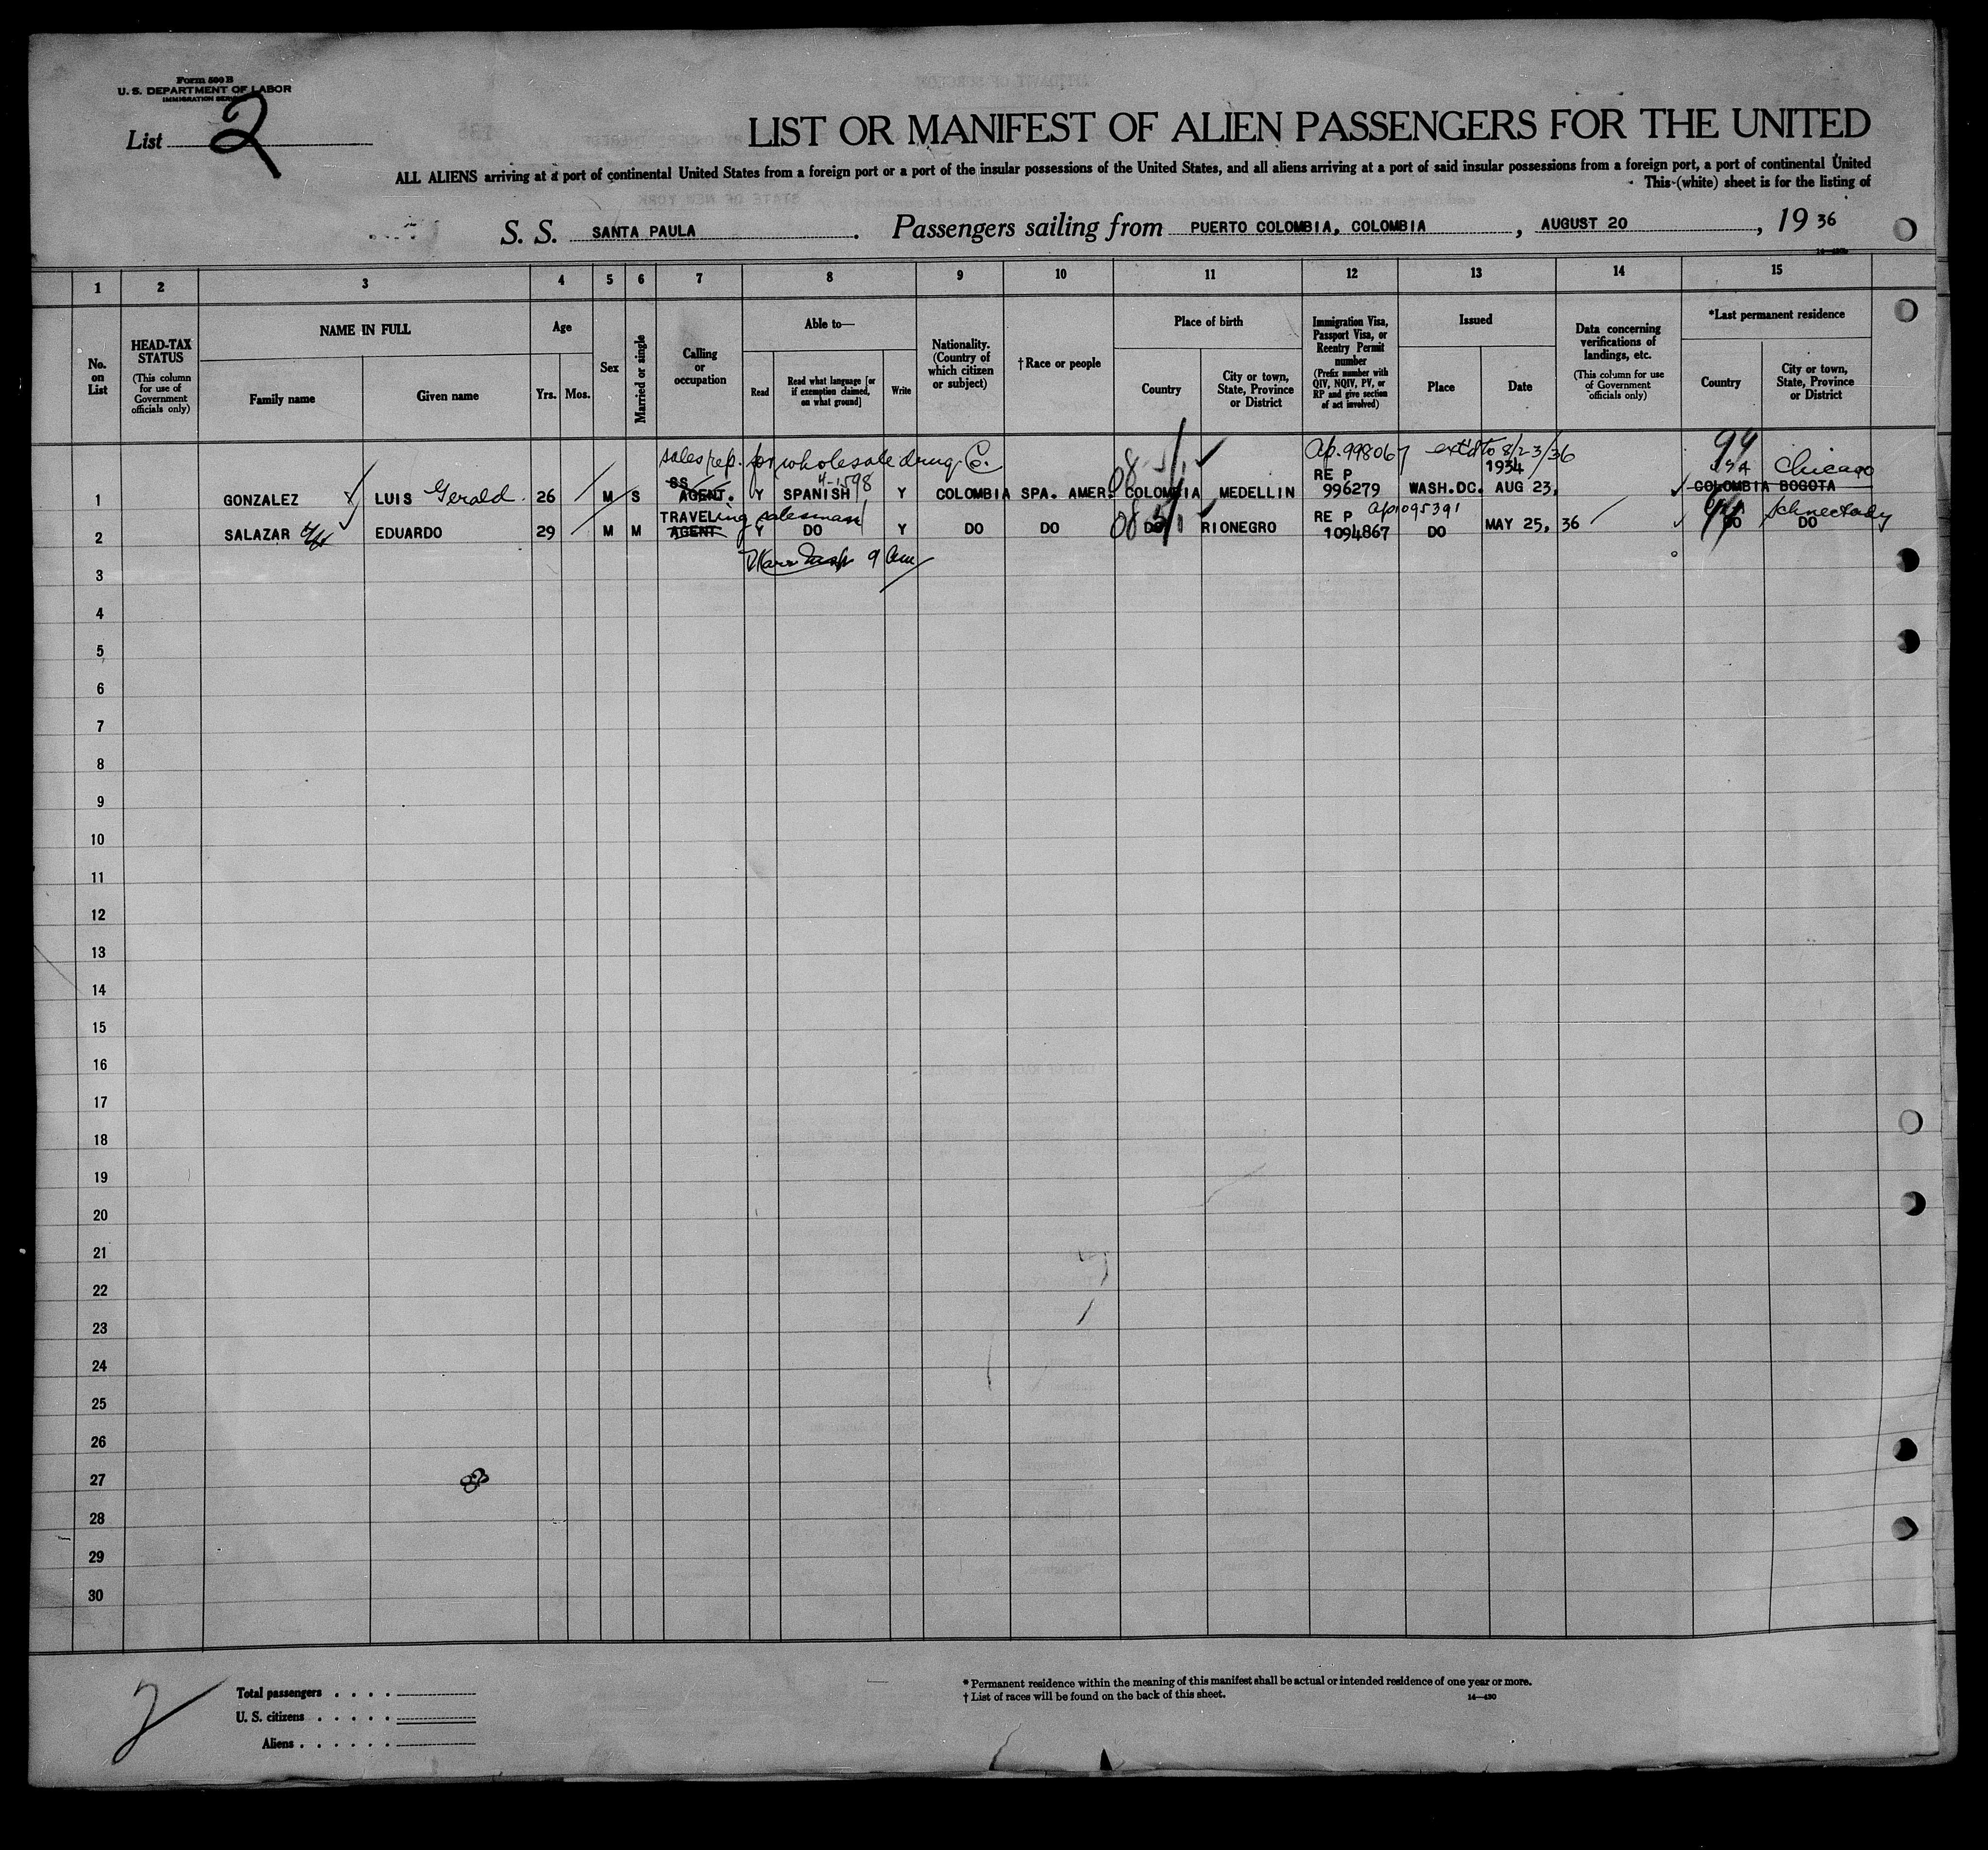 Form 500 B
U. S. DEPARTMENT OF LABOR
IMMIGRATION SERVICE
List 2
LIST OR MANIFEST OF ALIEN PASSENGERS FOR THE UNITED
ALL ALIENS arriving at a port of continental United States from a foreign port or a port of the insular possessions of the United States, and all aliens arriving at a port of said insular possessions from a foreign port, a port of continental United
This (white) sheet is for the listing of
S. S. SANTA PAULA. Passengers sailing from PUERTO COLOMBIA, COLOMBIA, AUGUST 20, 1936
1 2 3 4 5 6 7 8 9 10 11 12 13 14 15
No. on List
HEAD-TAX STATUS
(This column for use of Government officials only)
NAME IN FULL
Family name
Given name
Age
Yrs. Mos.
Sex
Married or single
Calling or occupation
Able to—
Read
Read what language [or if exemption claimed, on what ground]
Write
Nationality. (Country of which citizen or subject)
†Race or people
Place of birth
Country
City or town, State, Province or District
Immigration Visa, Passport Visa, or Reentry Permit number
(Prefix number with QIV, NQIV, PV, or RP and give section of act involved)
Issued
Place
Date
Data concerning verifications of landings, etc.
(This column for use of Government officials only)
*Last permanent residence
Country
City or town, State, Province or District
sales rep. for wholesale drug. Co. 08 ap. 998067 ext'd to 8/23/36 94
4-1598 RE P 1934 Chicago
1 GONZALEZ LUIS Gerald 26 M S AGENT. Y SPANISH Y COLOMBIA SPA. AMER. COLOMBIA MEDELLIN 996279 WASH.DC. AUG 23, COLOMBIA BOGOTA
TRAVELing salesman RE P ap1095391 Schnectady
2 SALAZAR EDUARDO 29 M M AGENT Y DO Y DO DO DO RIONEGRO 1094867 DO MAY 25, 36 DO DO
3
4
5
6
7
8
9
10
11
12
13
14
15
16
17
18
19
20
21
22
23
24
25
26
27
28
29
30
2
Total passengers . . . .
U. S. citizens . . . . .
Aliens . . . . . .
* Permanent residence within the meaning of this manifest shall be actual or intended residence of one year or more.
† List of races will be found on the back of this sheet. 14—430